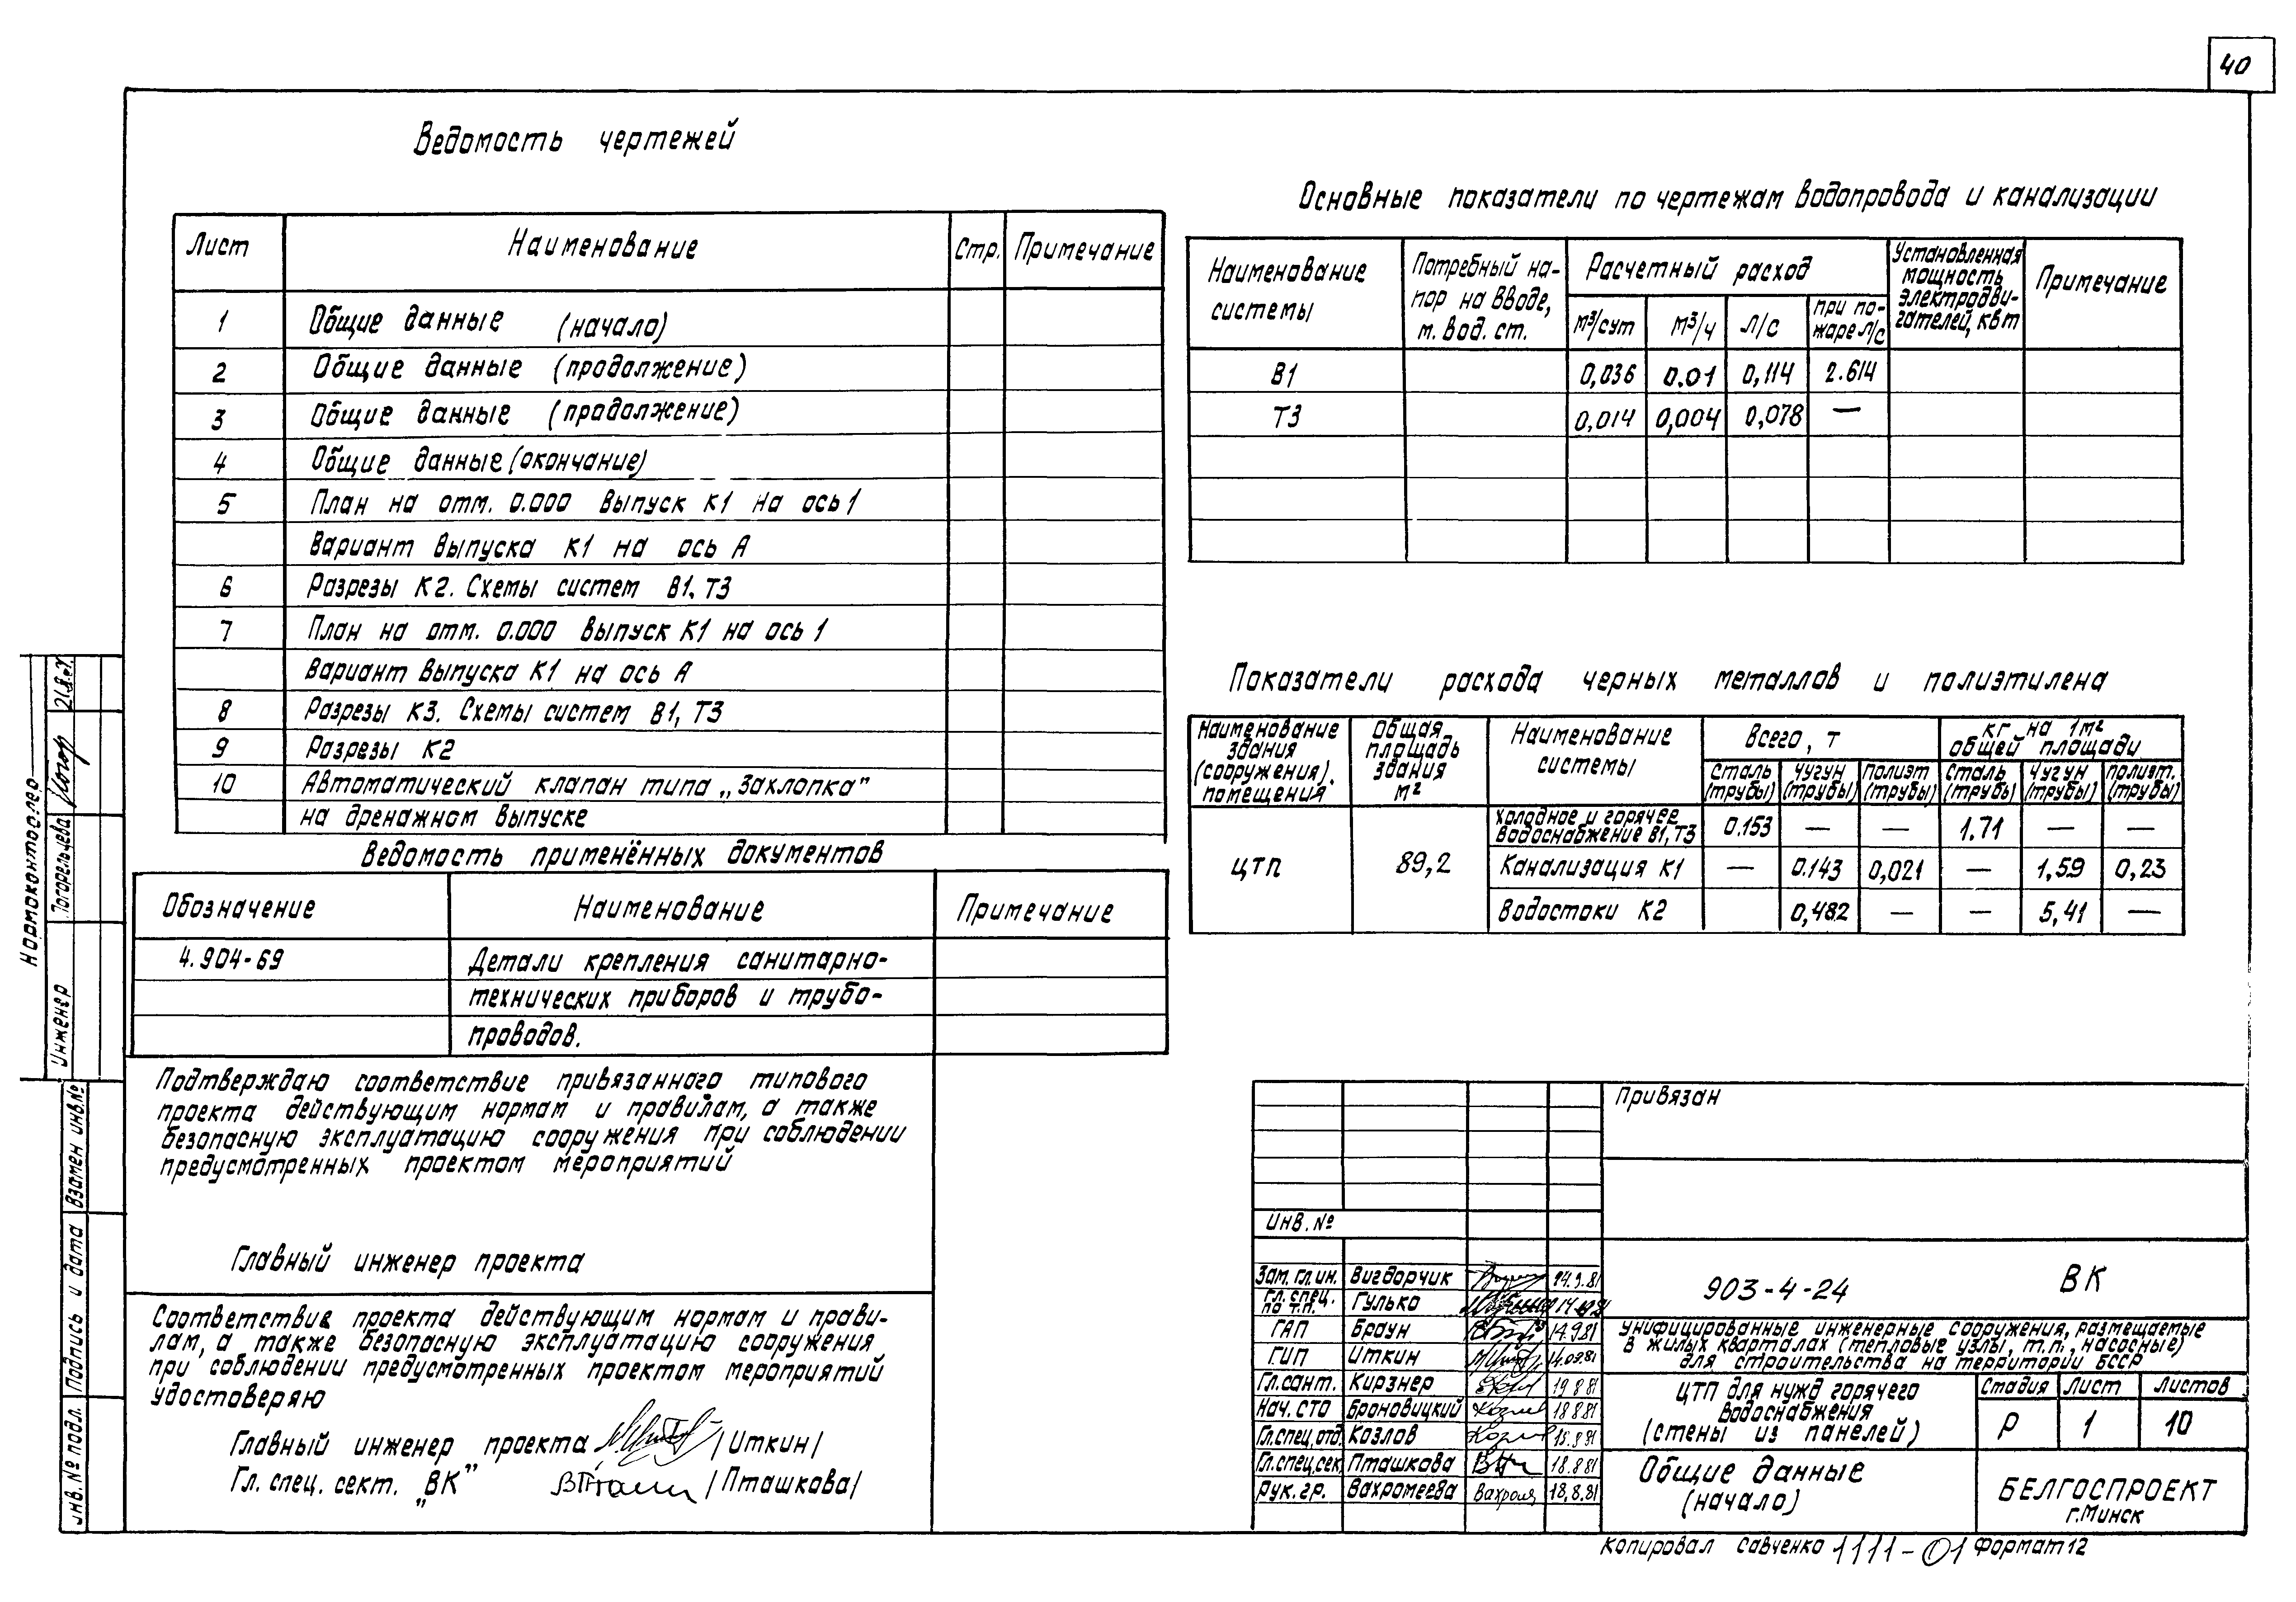 40
Ведомость чертежей
Лист Наименование Стр. Примечание
1 Общие данные (начало)
2 Общие данные (продолжение)
3 Общие данные (продолжение)
4 Общие данные (окончание)
5 План на отм. 0.000 Выпуск К1 на ось 1
Вариант выпуска К1 на ось А
6 Разрезы К2. Схемы систем В1, Т3
7 План на отм. 0.000 Выпуск К1 на ось 1
Вариант выпуска К1 на ось А
8 Разрезы К3. Схемы систем В1, Т3
9 Разрезы К2
10 Автоматический клапан типа „Захлопка"
на дренажном выпуске
Ведомость применённых документов
Обозначение Наименование Примечание
4.904-69 Детали крепления санитарно-
технических приборов и трубо-
проводов.
Подтверждаю соответствие привязанного типового
проекта действующим нормам и правилам, а также
безопасную эксплуатацию сооружения при соблюдении
предусмотренных проектом мероприятий
Главный инженер проекта
Соответствие проекта действующим нормам и прави-
лам, а также безопасную эксплуатацию сооружения
при соблюдении предусмотренных проектом мероприятий
удостоверяю
Главный инженер проекта /Иткин/
Гл. спец. сект. „ВК" /Пташкова/
Основные показатели по чертежам водопровода и канализации
Наименование системы
Потребный на-
пор на вводе,
м. вод. ст.
Расчетный расход
м³/сут м³/ч л/с при по-
жаре л/с
Установленная
мощность
электродви-
гателей, квт
Примечание
В1 0,036 0.01 0,114 2.614
Т3 0,014 0,004 0,078 —
Показатели расхода черных металлов и полиэтилена
Наименование
здания
(сооружения).
помещения
Общая
площадь
здания
м²
Наименование
системы
Всего, т
кг на 1м²
общей площади
Сталь (трубы) Чугун (трубы) Полиэт (трубы) Сталь (трубы) Чугун (трубы) Полиэт. (трубы)
ЦТП 89,2
Холодное и горячее
водоснабжение В1, Т3 0.153 — — 1.71 — —
Канализация К1 — 0.143 0,021 — 1,59 0,23
Водостоки К2 0,482 — — 5,41 —
Привязан
Инв. №
Зам. гл. ин. Вигдорчик 14.9.81
Гл. спец. по т.п. Гулько
ГАП Браун 14.9.81
ГИП Иткин 14.09.81
Гл. сант. Кирзнер 19 8 81
Нач. СТО Броновицкий 18 8 81
Гл. спец. отд. Козлов 15.8 81
Гл. спец. сек. Пташкова 18.8 81
Рук. гр. Вахромеева 18.8.81
903-4-24 ВК
Унифицированные инженерные сооружения, размещаемые
в жилых кварталах (тепловые узлы, т.п., насосные)
для строительства на территории БССР
ЦТП для нужд горячего
водоснабжения
(стены из панелей)
Стадия Лист Листов
Р 1 10
Общие данные
(начало)
БЕЛГОСПРОЕКТ
г. Минск
Копировал Савченко 1111-01 Формат 12
Нормоконтролер
Инженер Погорельцева
Инв. № подл. Подпись и дата Взамен инв. №